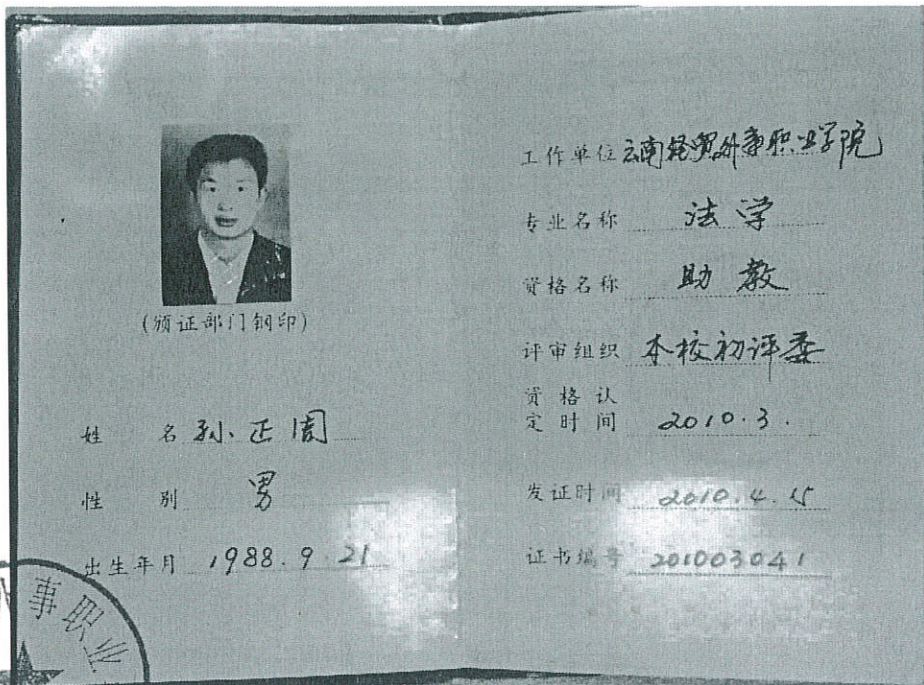 (颁证部门钢印)
姓 名 孙正周
性 别 男
出生年月 1988.9.21
事职业
工作单位 云南经贸外事职业学院
专业名称 法学
资格名称 助教
评审组织 本校初评委
资格认
定时间 2010.3.
发证时间 2010.4.15
证书编号 201003041